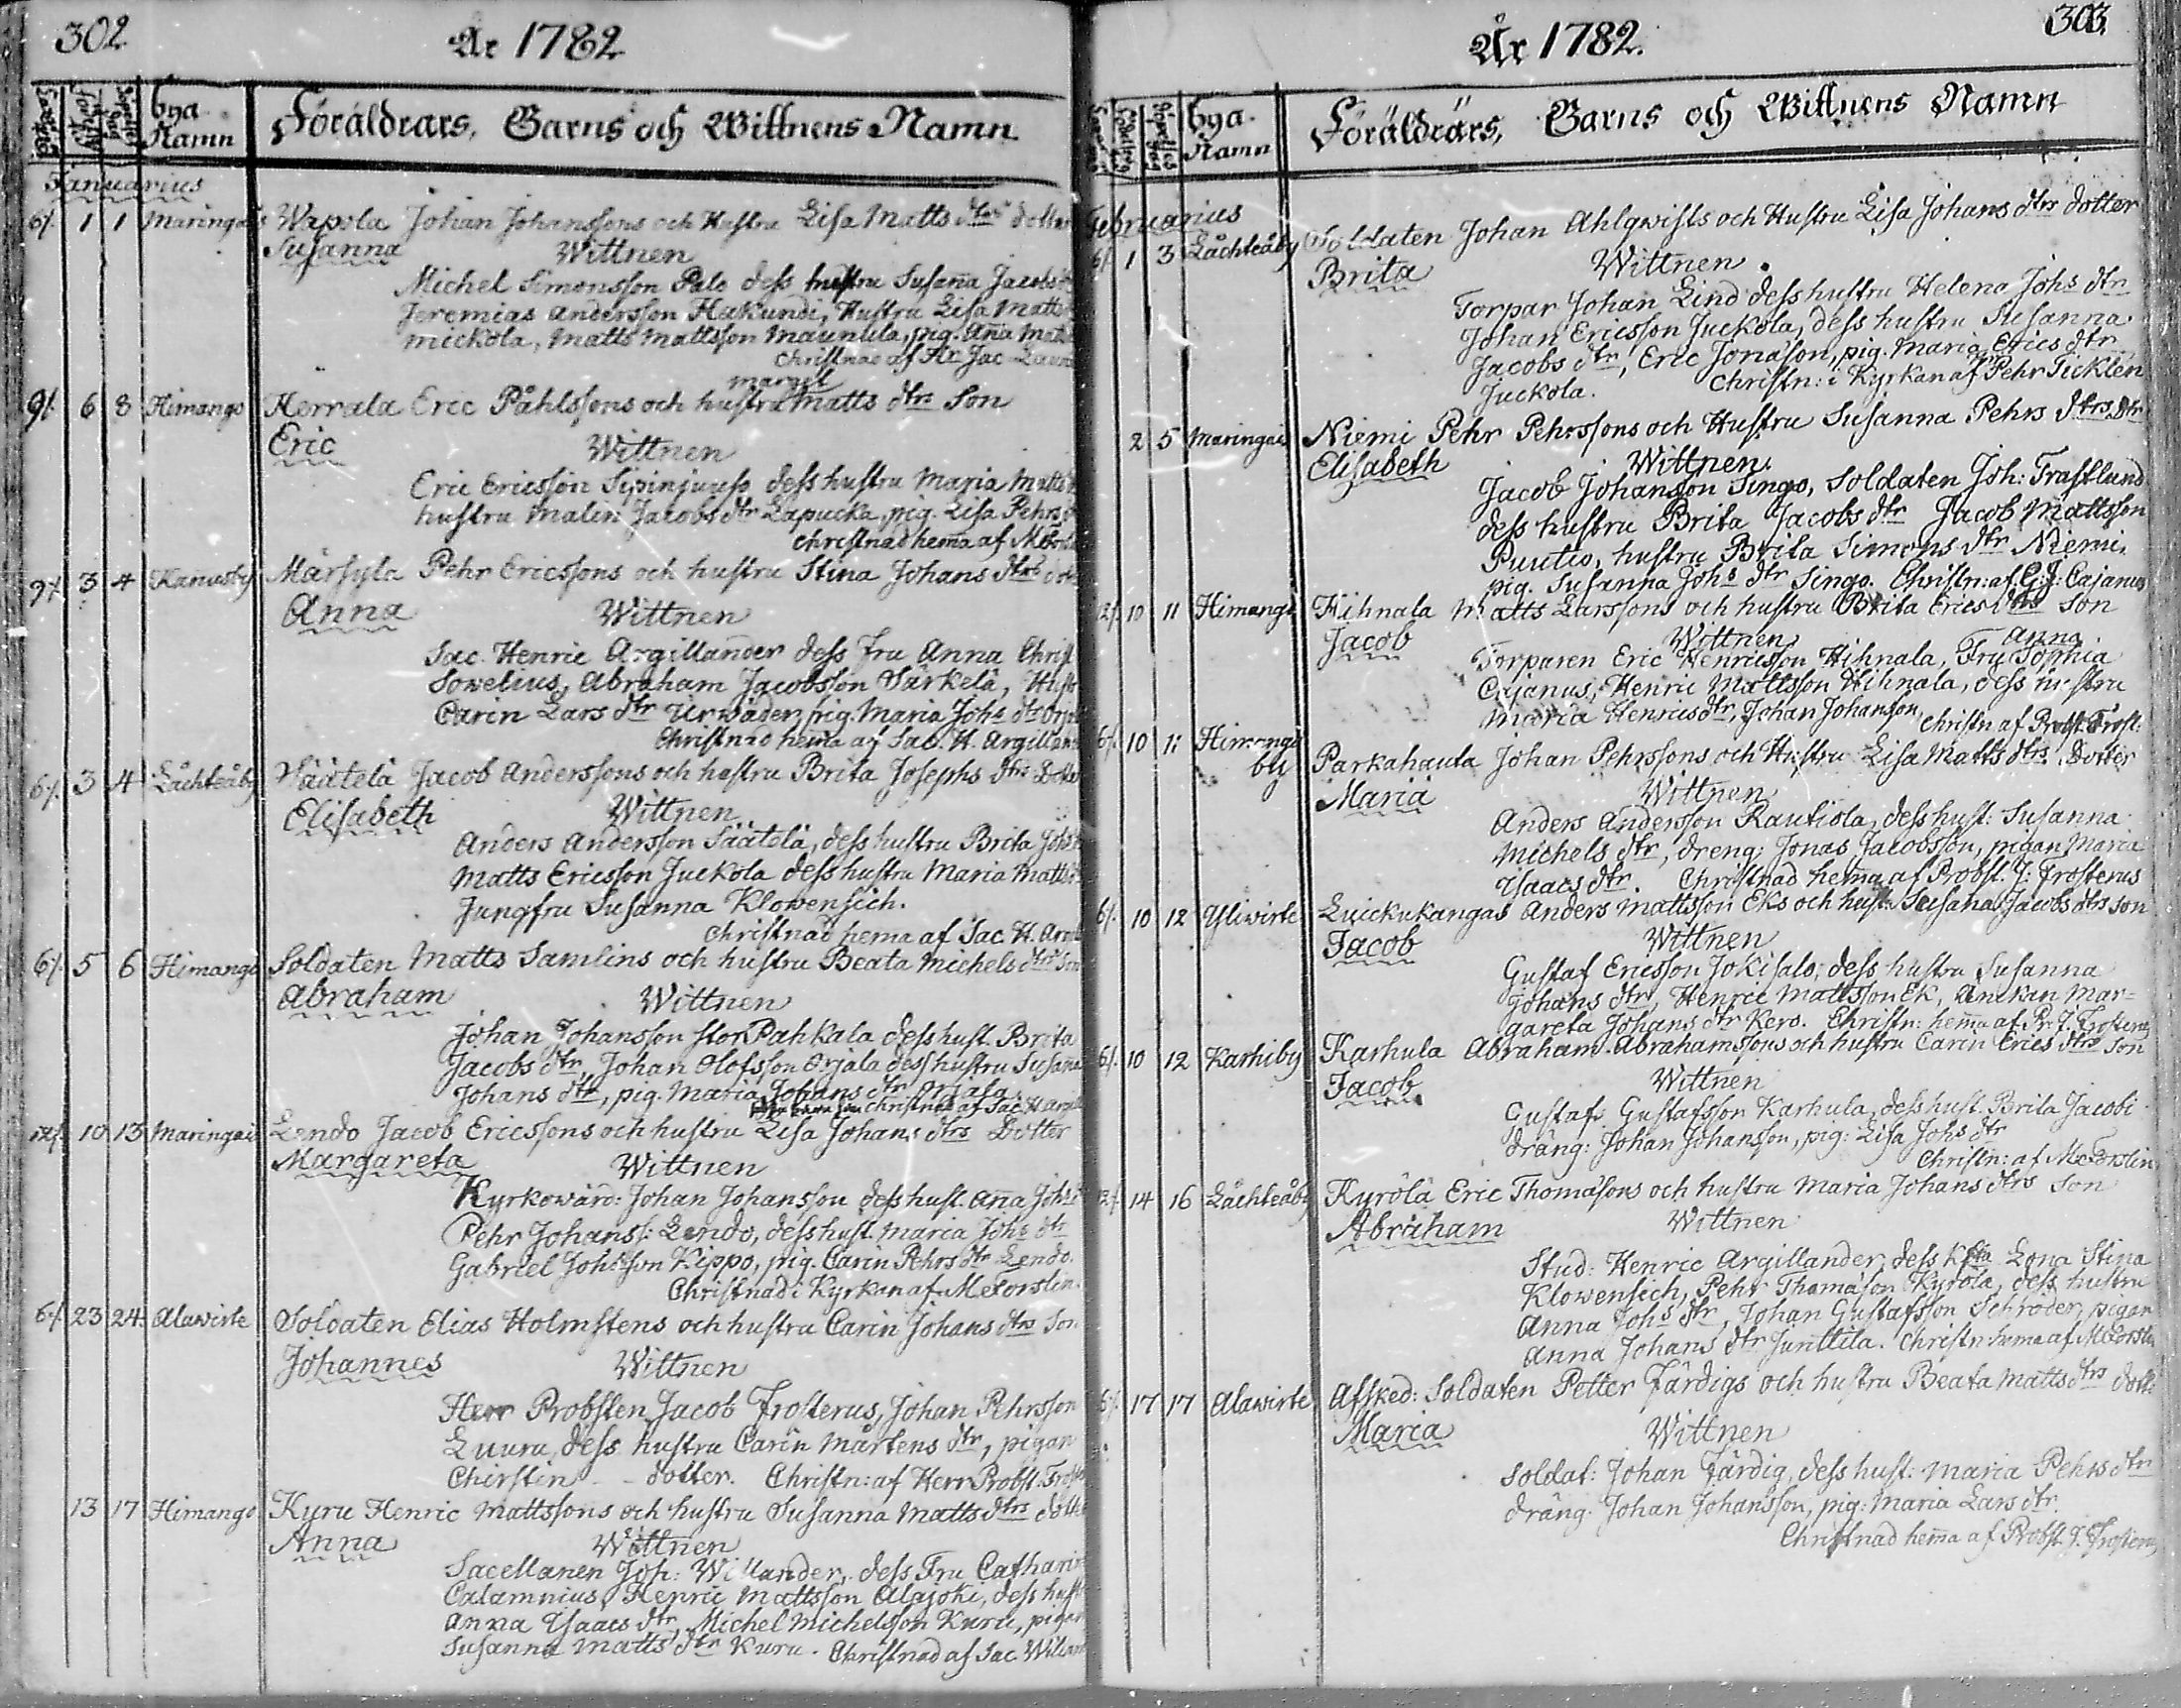 302
År 1782
bya Namn
Föräldrars, Barns och Wittnens Namn
Januarius
6/. 1 1 Maringais Wapola Johan Johanssons och Hustru Lisa Matts dtrs dotter
Susanna Wittnen
Michel Simonsson Palo dess hustru Susanna Jacobs
Jeremias Andersson Hakundi, Hustru Lisa Matts
mickola, Matts Mattsson Mauntila, pig. Anna Matts
Christnad af Jac
margt
9/. 6 8 Himango Herrala Eric Påhlssons och hustru Matts dtrs Son
Eric Wittnen
Eric Ericsson Sipinjuuso dess hustru Maria Matts
hustru Malin Jacobs dtr Lapucka, pig. Lisa Pehrs
Christnad hema af M
9/. 3 4 Kanusby Märsylä Pehr Ericssons och hustru Stina Johans dtrs
Anna Wittnen
Sac. Henric Argillander dess Fru Anna Christ
Sowelius, Abraham Jacobsson Särkelä, Hust
Carin Lars dtr Urwäder, pig. Maria Johs dtr Orj
Christnad hema af Sac. H. Argillan
6/. 3 4 Låchteåby Säätelä Jacob Anderssons och hustru Brita Josephs dtrs Dotter
Elisabeth Wittnen
Anders Andersson Säätelä, dess hustru Brita Johs
Matts Ericsson Juckola dess hustru Maria Matts
Jungfru Susanna Klowensich.
Christnad hema af Sac. H. Arg
6/. 5 6 Himango Soldaten Matts Samlins och hustru Beata Michels dtrs Son
Abraham Wittnen
Johan Johansson stor Pahkala dess hust. Brita
Jacobs dtr, Johan Olofsson Orjala dess hustru Susanna
Johans dtr, pig. Maria Johans dtr Orjala.
Christnad af Sac. H. Argill
12/. 10 13 Maringais Lendo Jacob Ericssons och hustru Lisa Johans dtrs Dotter
Margareta Wittnen
Kyrkowärd: Johan Johansson dess hust. Anna Johs
Pehr Johanss: Lendo, dess hust. Maria Johs dtr
Gabriel Johsson Kippo, pig. Carin Pehrs dtr Lendo.
Christnad i Kyrkan af M: Forslin.
6/. 23 24 Alawirte Soldaten Elias Holmstens och hustru Carin Johans dtrs Son
Johannes Wittnen
Herr Probsten Jacob Frosterus, Johan Pehrsson
Luuru, dess hustru Carin Mårtens dtr, pigan
Chirstin - - dotter. Christn: af Herr Probst. Frost
13 17 Himango Kyru Henric Mattssons och hustru Susanna Matts dtrs dotte
Anna Wittnen
Sacellanen Joh: Willander, dess Fru Catharin
Calamnius, Henric Mattsson Alajoki, dess hust
Anna Isaacs dtr, Michel Michelsson Kuru, pigan
Susanna Matts dtr Kuru. Christnad af Sac. Willan
303.
År 1782.
bya Namn
Föräldrars, Barns och Wittnens Namn
Februarius
6/. 1 3 Låchteåby Soldaten Johan Ahlqwists och Hustru Lisa Johans dtrs dotter
Brita Wittnen
Torpar Johan Lind dess hustru Helena Johs dtr
Johan Ericsson Juckola, dess hustru Susanna
Jacobs dtr, Eric Jonasson, pig. Maria Erics dtr
Juckola. Christn: i Kyrkan af Pehr Ticklén
2 5 Maringais Niemi Pehr Pehrssons och Hustru Susanna Pehrs dtrs Dtr
Elisabeth Wittnen
Jacob Johansson Singo, Soldaten Joh: Trastlund
dess hustru Brita Jacobs dtr Jacob Mattsson
Puutio, hustru Brita Simons dtr Niemi,
pig. Susanna Johs dtr Singo. Christn: af G: J: Cajanus
12/. 10 11 Himango Hihnala Matts Larssons och hustru Brita Erics dtrs Son
Jacob Wittnen Anna
Torparen Eric Henricsson Hihnala, Fru Sophia
Cajanus, Henric Mattsson Hihnala, dess hustru
Maria Henrics dtr, Johan Johanson Christn af Probst Frost:
6/. 10 11 Himango by Parkahauta Johan Pehrssons och Hustru Lisa Matts dtrs Dotter
Maria Wittnen
Anders Andersson Rautiola, dess hust: Susanna
Michels dtr, dreng: Jonas Jacobsson, pigan Maria
Isaacs dtr. Christnad hema af Probst. J: Frosterus
6/. 10 12 Yliwirte Luickukangas Anders Mattsson Eks och hust. Susana Jacobs dtrs Son
Jacob Wittnen
Gustaf Ericsson Jokisalo, dess hustru Susanna
Johans dtr, Henric Mattsson Ek, Änckan Mar=
gareta Johans dtr Kero. Christn: hema af Pr. J. Frosterus
6/. 10 12 Karhiby Karhula Abraham Abrahamssons och hustru Carin Erics dtrs Son
Jacob Wittnen
Gustaf Gustafsson Karhula, dess hust. Brita Jacobi
dräng: Johan Johansson, pig: Lisa Johs dtr
Christn: af M: Forslin
12/. 14 16 Låchteåby Kyrölä Eric Thomasons och hustru Maria Johans dtrs Son
Abraham Wittnen
Stud: Henric Argillander, dess Lona Stina
Klowensich, Pehr Thomason Kyrölä, dess hustru
Anna Johs dtr, Johan Gustafsson Schroder, pigan
Anna Johans dtr Junttila. Christn: hema af M: Forslin
6/. 17 17 Alawirte Afsked: Soldaten Petter Färdigs och hustru Beata Matts dtrs dotte
Maria Wittnen
Soldat: Johan Färdig, dess hust: Maria Pehrs dtr
dräng: Johan Johansson, pig: Maria Lars dtr
Christnad hema af Probst. J. Frosterus